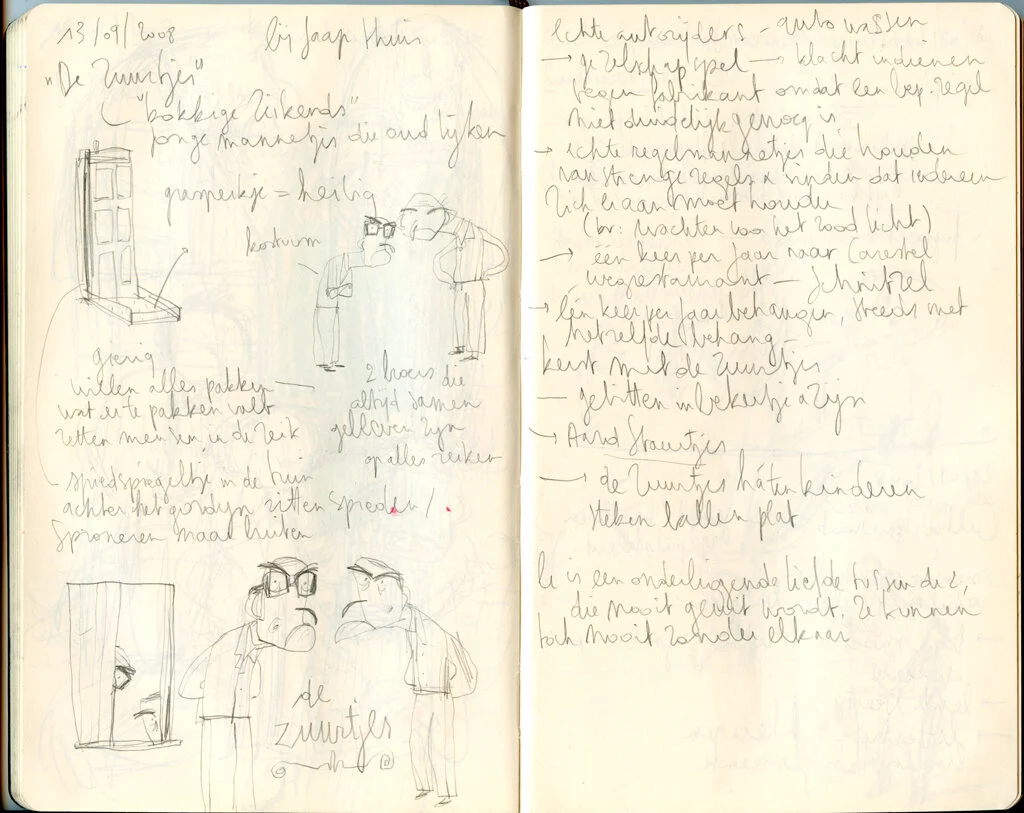 13/09/2008
bij Jaap thuis
"De Zuurtjes"
"bokkige zeikends"
jonge mannetjes die oud lijken
grasperkje = heilig
kostuum
gierig
willen alles pakken
wat er te pakken valt
zetten mensen in de zeik
2 broers die
altijd samen
gebleven zijn
op alles zeiken
spiedspiegeltje in de tuin
achter het gordijn zitten spieden /
spioneren naar buiten
de
zuurtjes
Echte autorijders - auto wassen
→ gezelschapspel → klacht indienen
tegen fabrikant omdat een bep. regel
niet duidelijk genoeg is
→ echte regelmannetjes die houden
van strenge regels & vinden dat iedereen
zich eraan moet houden
(bv: wachten voor het rood licht)
→ één keer per jaar naar Carestel
wegrestaurant - Schnitzel
→ één keer per jaar behangen, steeds met
hetzelfde behang -
kerst met de Zuurtjes
- gebitten in bekertje
→ Aard Stouwtjes
→ de Zuurtjes háten kinderen
steken ballen plat
Er is een onderliggende liefde tussen de 2,
die nooit geuit wordt. Ze kunnen
toch nooit zonder elkaar